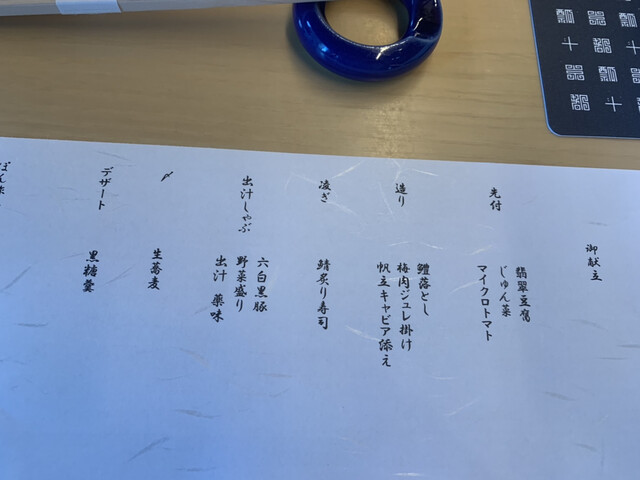 御献立
先付
翡翠豆腐
じゅん菜
マイクロトマト
造り
鱧落とし
梅肉ジュレ掛け
帆立キャビア添え
凌ぎ
鯖炙り寿司
出汁しゃぶ
六白黒豚
野菜盛り
出汁 薬味
〆
生蕎麦
デザート
黒糖羹